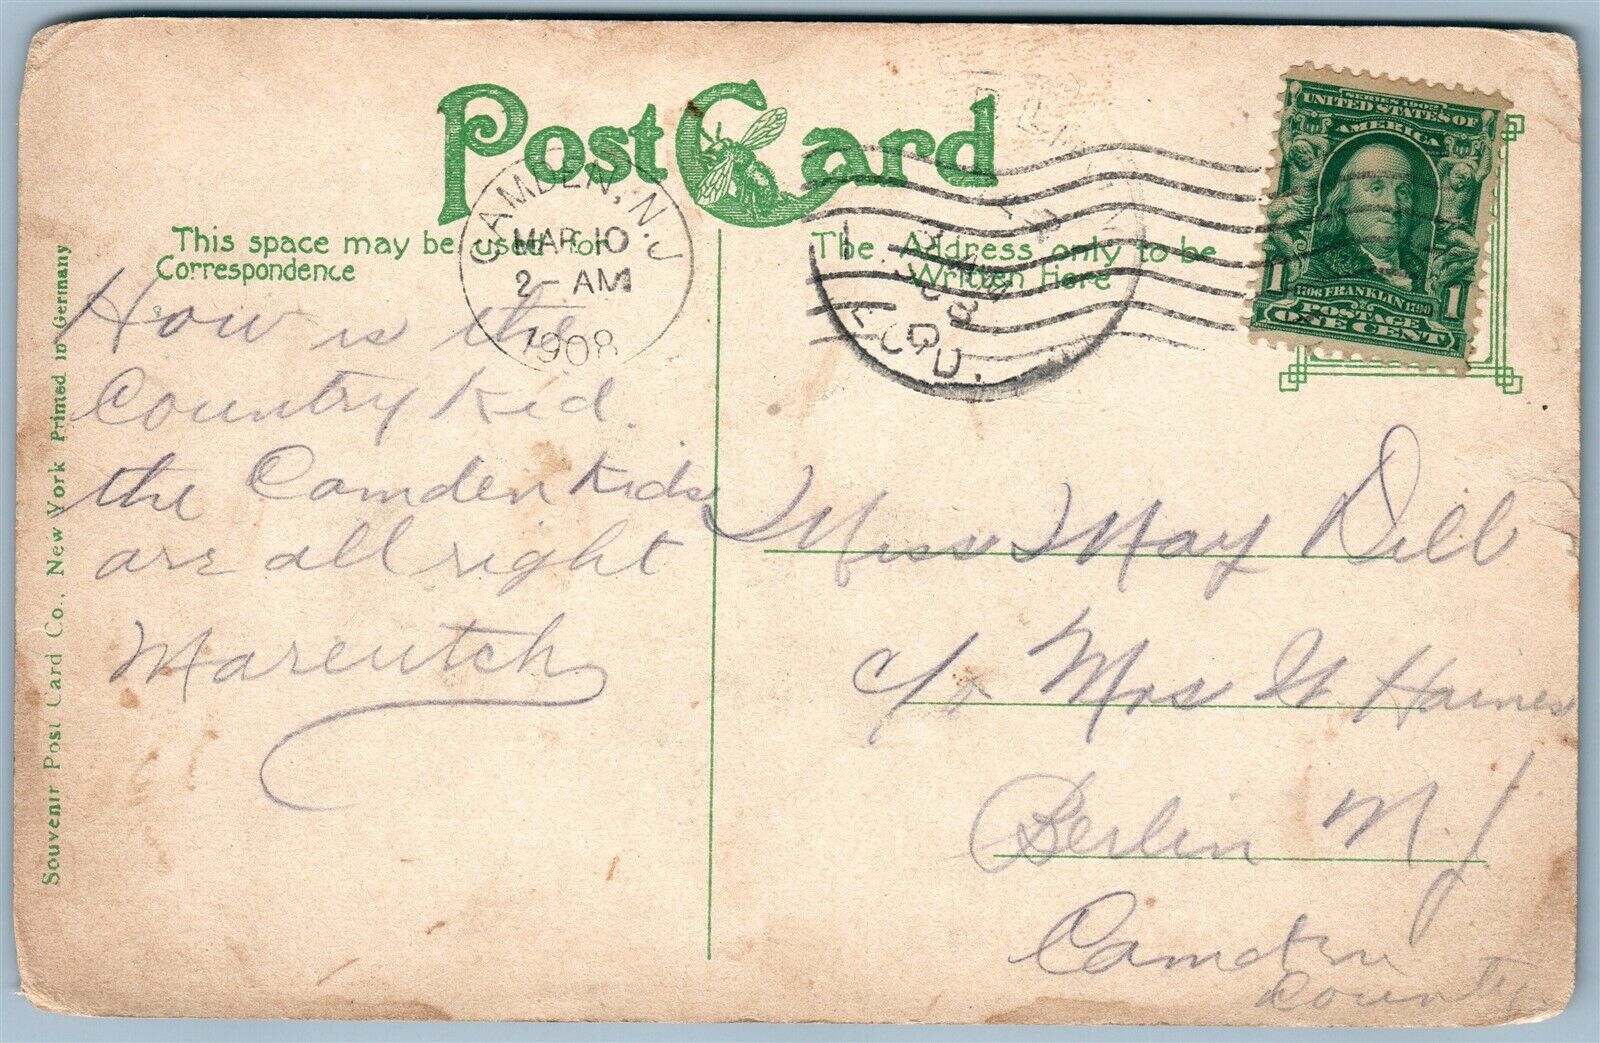 Post Card
This space may be used for
Correspondence
The Address only to be
Written Here
CAMDEN, N.J.
MAR 10
2 - AM
1908
REC'D.
SERIES 1902
UNITED STATES OF
AMERICA
1706 FRANKLIN 1790
POSTAGE
1 ONE CENT 1
How is the
Country Kid.
the Camden Kids
are all right
Mareutch
Miss May Dill
c/o Mrs W. Haines
Berlin N.J
Camden
County
Souvenir Post Card Co., New York Printed in Germany